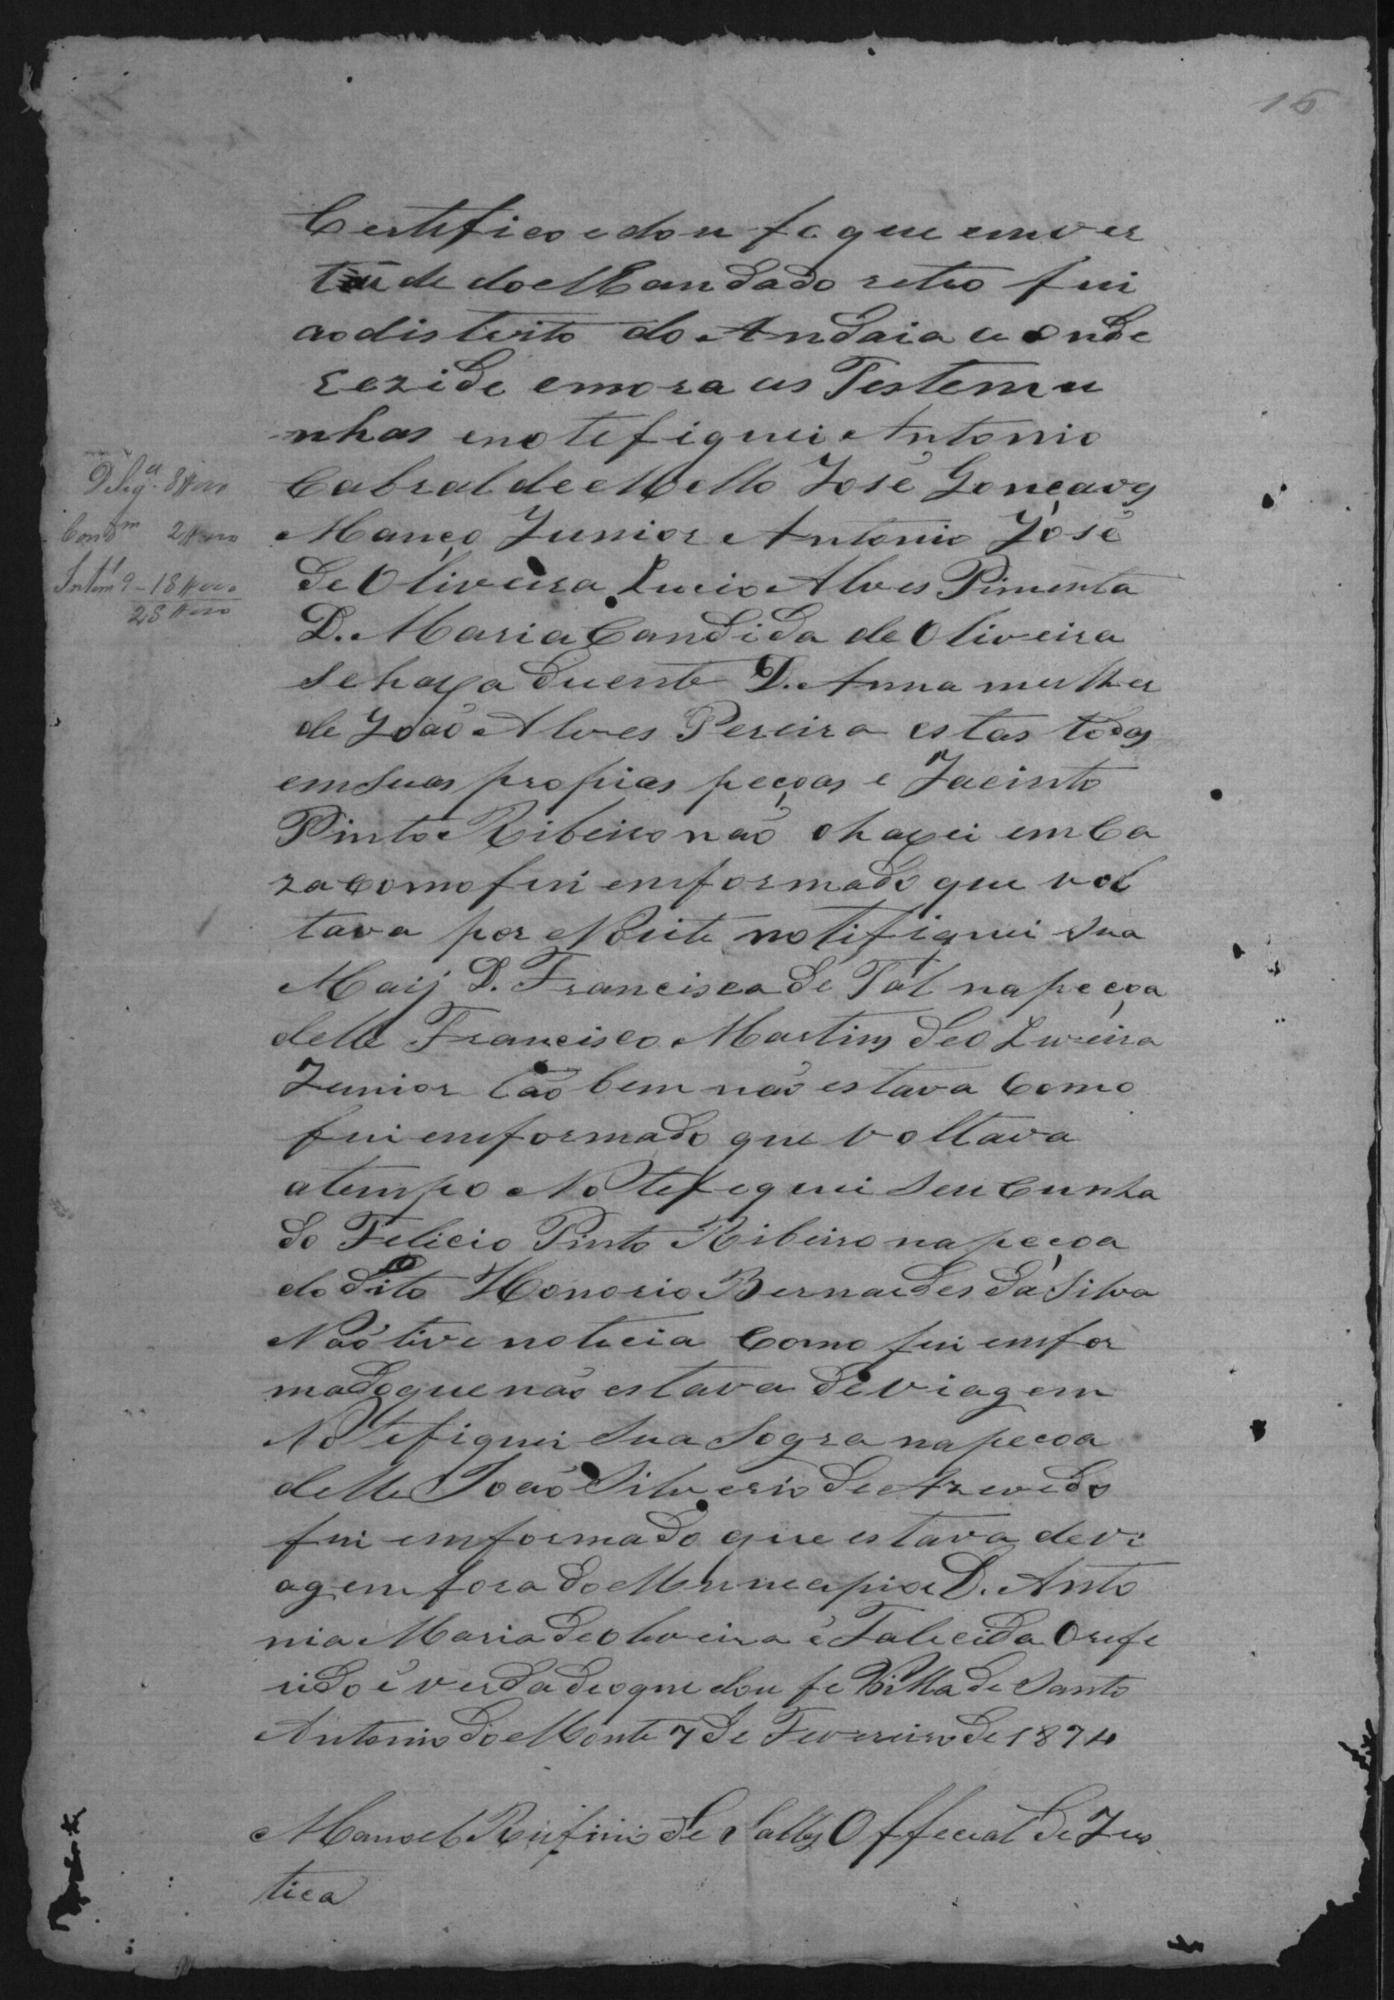 15
Certifico e dou fe que em ver
tude do Mandado retro fui
ao distrito do Andaia a onde
rezide e mora as Testemu
nhas e notefiquei Antonio
Cabral de Mello José Gonçavs
Manço Junior Antonio José
de Oliveira Lucio Alves Pimenta
D. Maria Candida de Oliveira
se haxa duente D. Anna mulher
de João Alves Pereira estas todas
em suas propias peçoas e Jacinto
Pinto Ribeiro não ohaxei em Ca
za como fui emformado que vol
tava por Noite notifiquei sua
Maij D. Francisca de Tal na peçoa
delle Francisco Martins de Oliveira
Junior tão bem não estava Como
fui emformado que voltava
a tempo Notefequei seu Cunha
do Felicio Pinto Ribeiro na peçoa
do dito Honorio Bernardes da Silva
Não tive noticia Como fui emfor
mado que não estava de viagem
Notefiquei sua sogra na peçoa
delle João Silverio de Azevedo
fui emformado que estava de vi
agem fora do Municipio e D. Anto
nia Maria de Oliveira é Falecida O refe
rido é verdade o que dou fe Villa de Santo
Antonio do Monte 7 de Fevereiro de 1874
Manoel Rufino de Salles Offecial de Jus
tica
Delig.ª 8$000
Cond.m 2$000
Intim 9 - 18$000
28$000